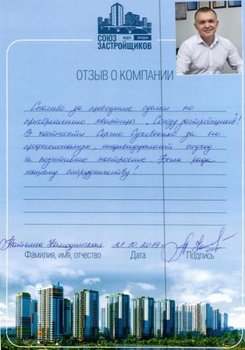 СОЮЗ
ЗАСТРОЙЩИКОВ
ОТЗЫВ О КОМПАНИИ
Спасибо за проведение сделки по
приобретению квартиры "Союзу застройщиков"!
В частности Сергею за его
профессионализм, индивидуальный подход
и позитивное настроение. Были рады
нашему сотрудничеству!
Татьяна 21.10.2019г
Фамилия, имя, отчество Дата Подпись